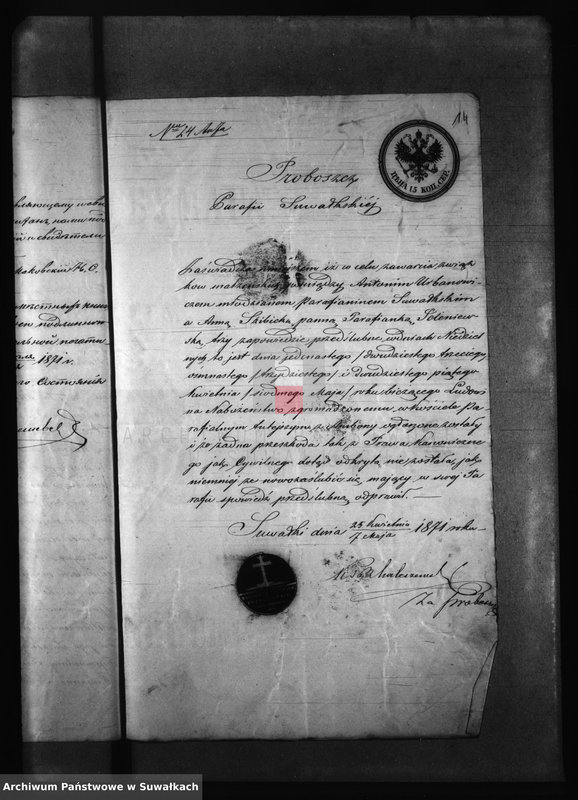 14
Nru 24 Aktu
ЦѢНА 15 КОП. СЕР.
Proboszcz
Parafii Suwałkskiéj
Zaświadcza niniejszem iż w celu zawarcia związ
ków małżeńskich pomiędzy Antonim Urbanowi-
czem młodzianem Parafianinem Suwałkskim
a Anną Skibicką panną Parafianką Jeleniew
ską trzy zapowiedzie przedślubne w dniach Niedziel
nych to jest dnia jedenastego /dwudziestego trzeciego/
osmnastego /trzydziestego/ i dwudziestego piątego
Kwietnia /siódmego Maja/ roku bieżącego Ludowi
na Nabożeństwo zgromadzonemu w kościele Pa-
rafialnym tutejszym z Ambony ogłoszone zostały
i że żadna przeszkoda tak z Prawa Kanoniczne
go jak Cywilnego dotąd odkrytą nie została, jako
niemniéj że nowozaślubić się mający w swéj Pa
rafii spowiedź przedślubną odprawił. —
Suwałki dnia 25 Kwietnia / 7 Maja 1871 roku —
Za Probosz
1871 г.
Archiwum Państwowe w Suwałkach